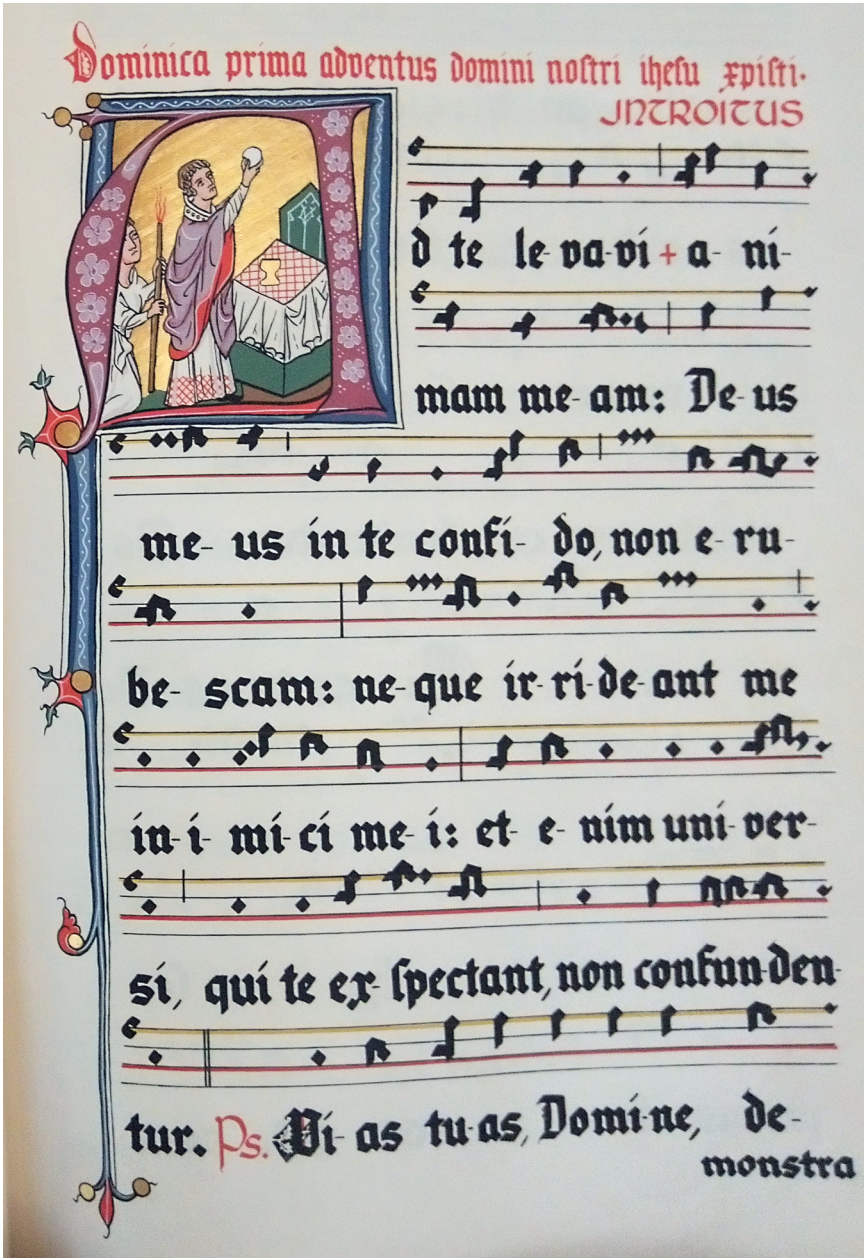 Dominica prima adventus domini noſtri iheſu xpiſti·
INTROITUS
Ad te le-va-vi + a-ni-
mam me-am: De-us
me-us in te confi-do, non e-ru-
be-scam: ne-que ir-ri-de-ant me
in-i-mi-ci me-i: et-e-nim uni-ver-
si, qui te ex-ſpectant, non confun-den-
tur. Ps. Vi-as tu-as, Domi-ne, de-
monstra